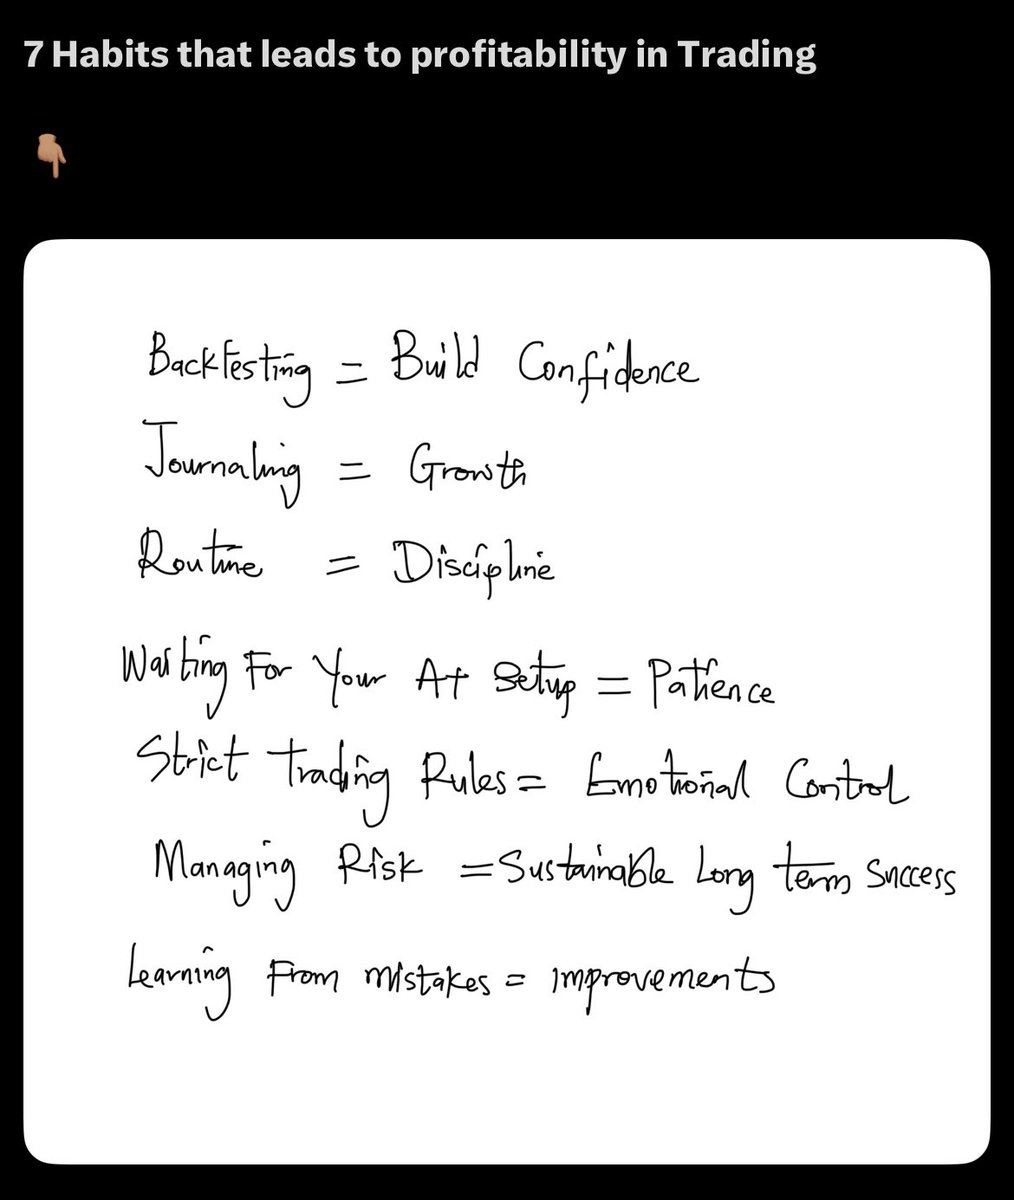 7 Habits that leads to profitability in Trading
👇🏽
Backtesting = Build Confidence
Journaling = Growth
Routine = Discipline
Waiting For Your A+ Setup = Patience
Strict Trading Rules = Emotional Control
Managing Risk = Sustainable Long term Success
Learning From mistakes = improvements